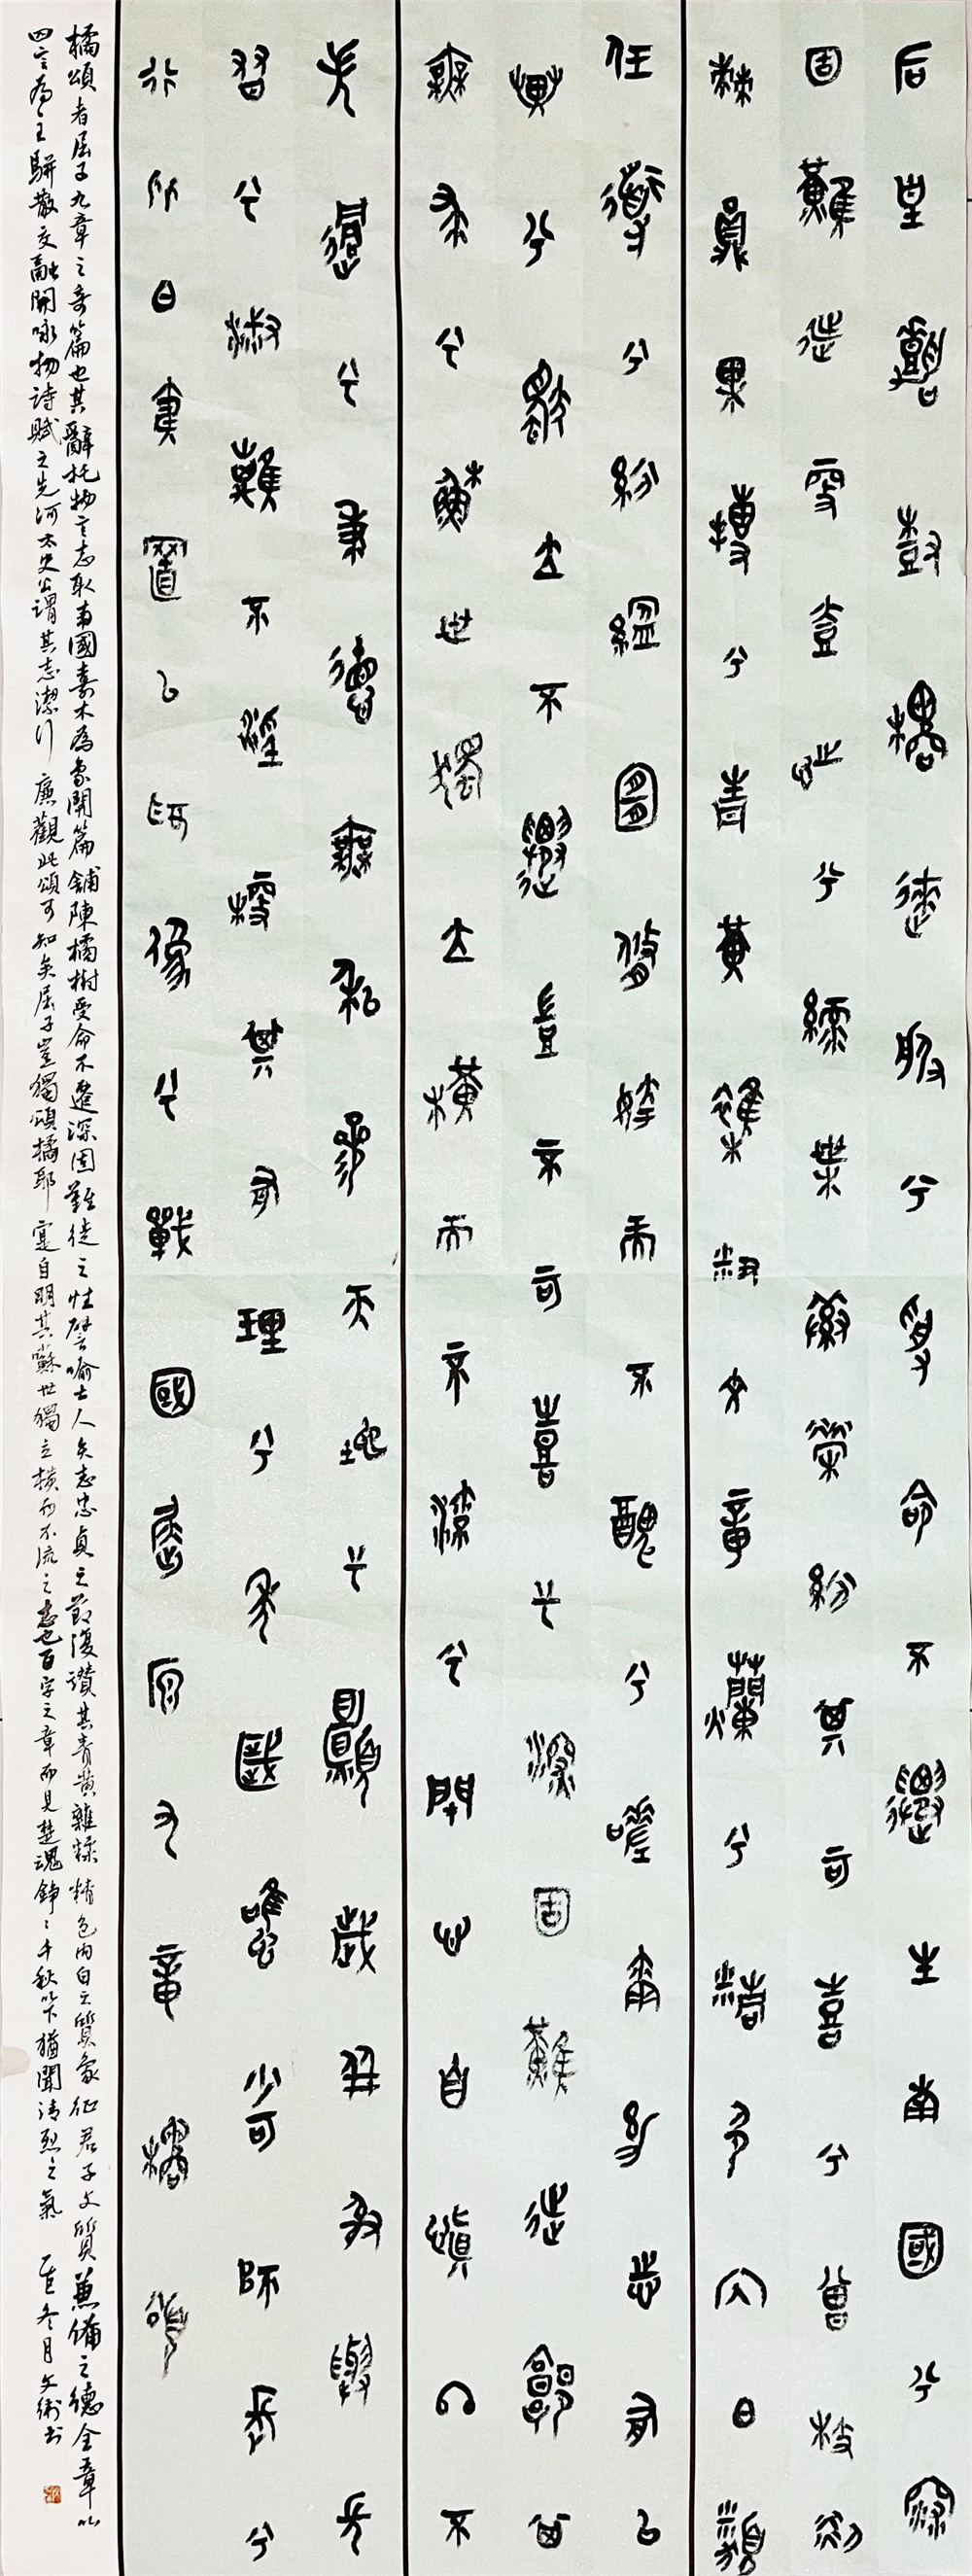 后皇嘉樹橘徠服兮受命不遷生南國兮深
固難徙更壹志兮綠葉素榮紛其可喜兮曾枝剡
棘圓果摶兮青黃雜糅文章爛兮精色內白類
任道兮紛縕宜脩姱而不醜兮嗟爾幼志有以
異兮獨立不遷豈不可喜兮深固難徙廓其
無求兮蘇世獨立橫而不流兮閉心自慎終不
失過兮秉德無私參天地兮願歲并謝與長
友兮淑離不淫梗其有理兮年歲雖少可師長兮
行比伯夷置以為像兮戰國屈原九章橘頌
橘頌者屈子九章之奇篇也其辭托物言志取南國嘉木為象開篇鋪陳橘樹受命不遷深固難徙之性譬喻士人矢志忠貞之節復讚其青黃雜糅精色內白之質象征君子文質兼備之德全章以
四言為主駢散交融開咏物詩賦之先河太史公謂其志潔行廉觀此頌可知矣屈子豈獨頌橘耶寔自明其蘇世獨立橫而不流之志也百字之章而見楚魂錚錚千秋以下猶聞清烈之氣 乙巳冬月文衛書